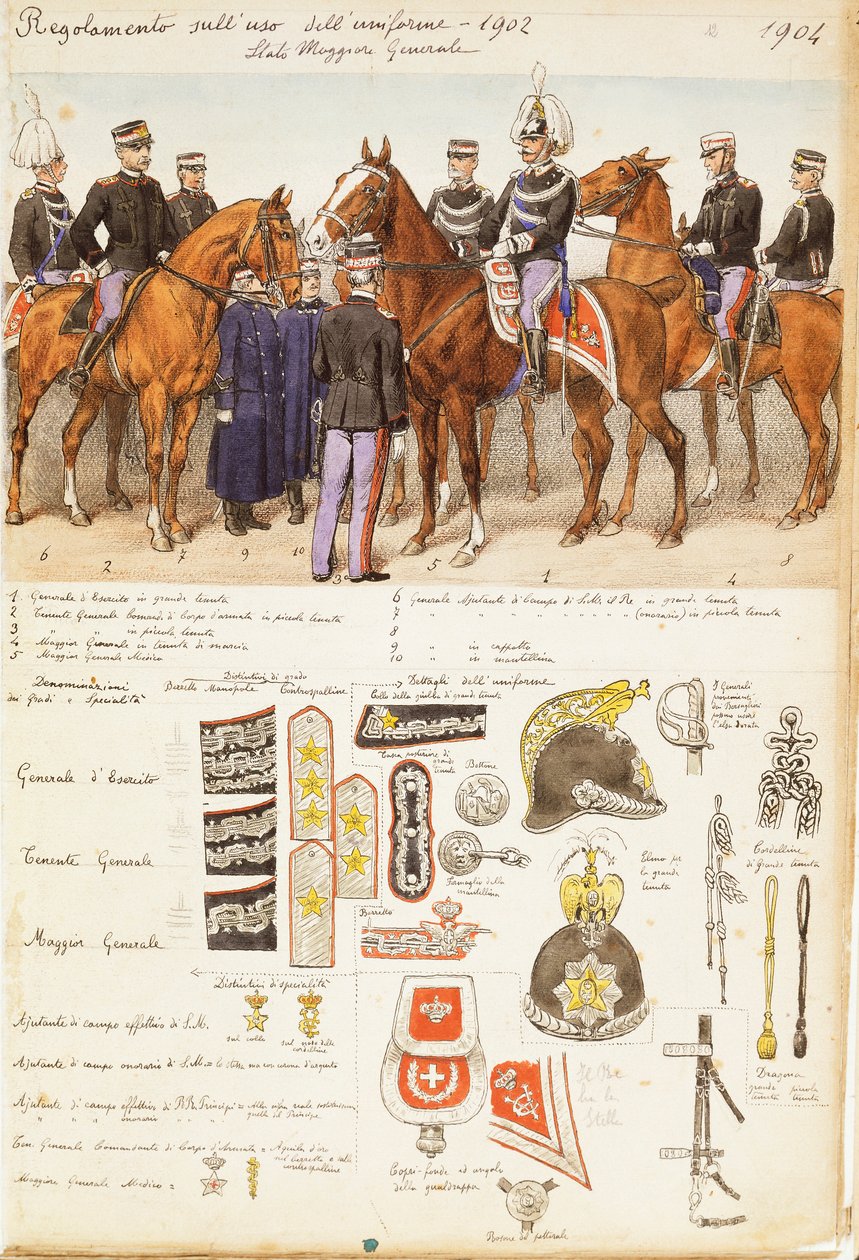 Regolamento sull'uso dell'uniforme - 1902
12
1904
Stato Maggiore Generale
6
2
7
9
10
3
5
1
4
8
1 Generale d'Esercito in grande tenuta
2 Tenente Generale Comand. di Corpo d'armata in piccola tenuta
3 " " in piccola tenuta
4 Maggior Generale in tenuta di marcia
5 Maggior Generale Medico
6 Generale Ajutante di Campo di S.M. il Re in grande tenuta
7 " " " " " " (onorario) in piccola tenuta
8
9 " in cappotto
10 " in mantellina
Denominazioni
dei Gradi e Specialità
Distintivi di grado
Berretto Manopole Controspalline
Dettagli dell'uniforme
Collo della giubba di grande tenuta
Generale d'Esercito
Tenente Generale
Maggior Generale
Tasca posteriore di
grande
tenuta
Bottone
Fermaglio della
mantellina
Berretto
I Generali
provenienti
dai Bersaglieri
possono usare
l'elsa dorata
Elmo per
la grande
tenuta
Cordelline
di Grande tenuta
Dragona
grande tenuta
piccola tenuta
Distintivi di specialità
Ajutante di campo effettivo di S.M.
sul collo
sul nodo delle
cordelline
Ajutante di campo onorario di S.M. = lo stesso ma con corona d'argento
Ajutante di campo effettivo di R.R. Principi = Alla cifra reale
quella il Principe
" " " onorario " " "
Ten. Generale Comandante di Corpo d'Armata = Aquila d'oro
sul berretto e sulle
controspalline
Maggiore Generale Medico =
Copri-fonde ed angolo
della gualdrappa
Il Re
ha la
Stella
Rosone del pettorale